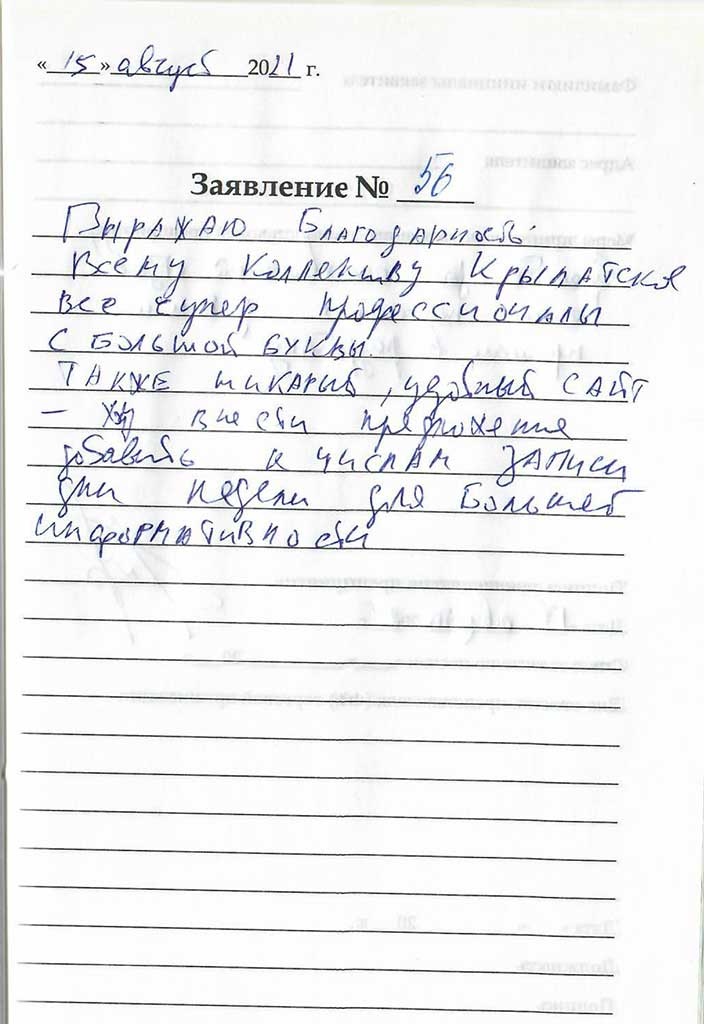 «15» август 2021 г.
Заявление № 56
Выражаю Благодарность
всему коллективу Крылатское
все супер профессионалы
с большой буквы.
Также шикарный, удобный сайт
– внести предложение
добавить к числам записи
дни недели для большей
информативности